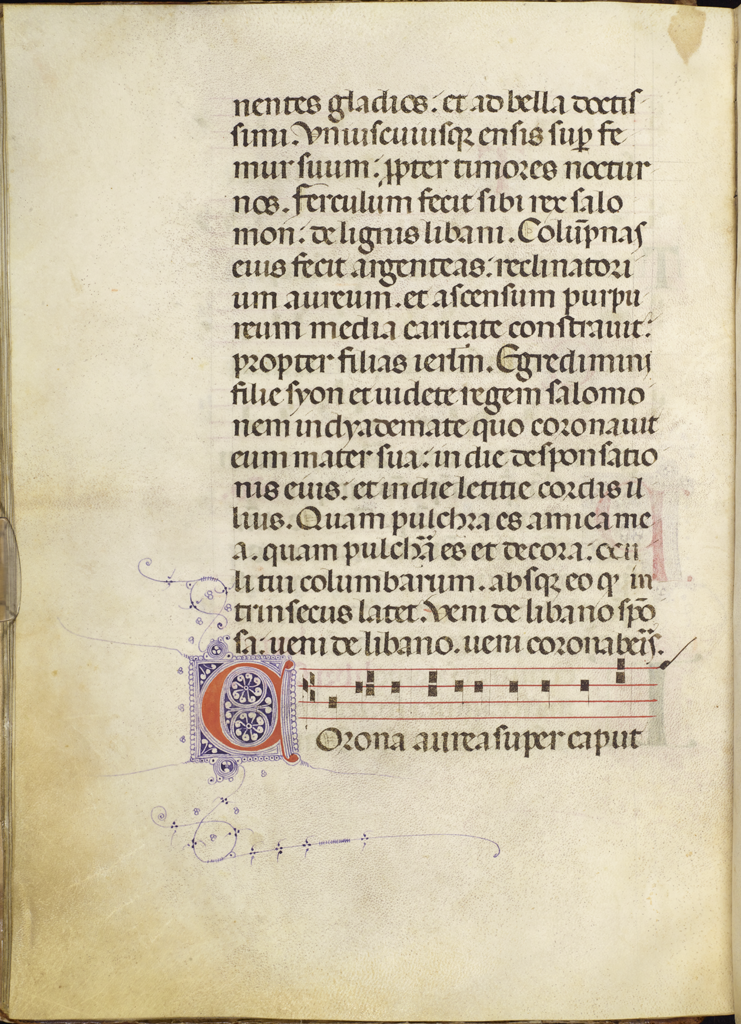 nentes gladios: et ad bella doctis
simi. Vniuscuiusq; ensis sup fe
mur suum: ppter timores noctur
nos. Ferculum fecit sibi rex salo
mon: de lignis libani. Colūpnas
eius fecit argenteas: reclinatori
um aureum. et ascensum purpu
reum media caritate constrauit:
propter filias ierlm̄. Egredimini
filie syon et uidete regem salomo
nem in dyademate quo coronauit
eum mater sua: in die desponsatio
nis eius: et in die letitie cordis il
lius. Quam pulchra es amica me
a. quam pulchᵃ es et decora: ocu
li tui columbarum. absq; eo qͥ in
trinsecus latet. Veni de libano spō
sa: ueni de libano. ueni coronaberis.
Corona aurea super caput